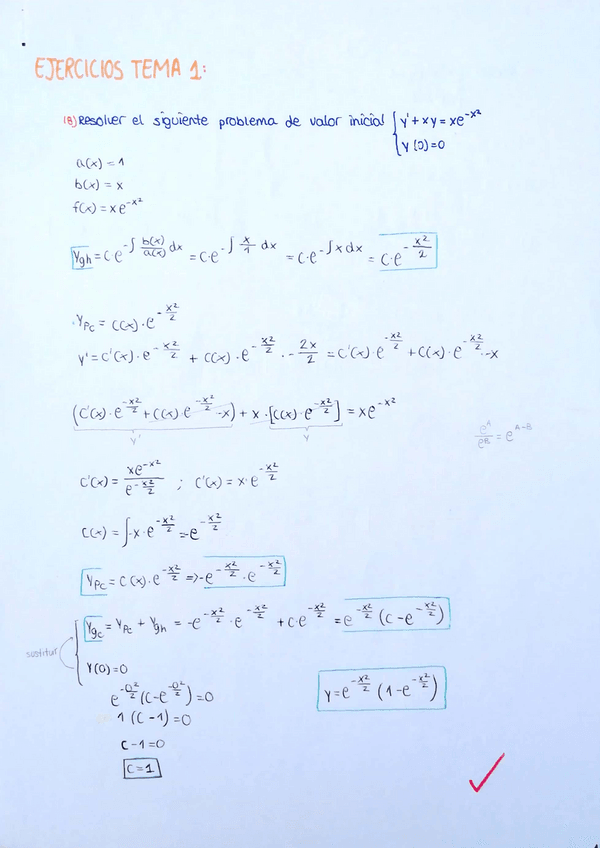 EJERCICIOS TEMA 1:
18) Resolver el siguiente problema de valor inicial { y' + xy = xe^{-x²}
y(0)=0
a(x) = 1
b(x) = x
f(x) = x e^{-x²}
Ygh = C e^{-∫ b(x)/a(x) dx} = C·e^{-∫ x/1 dx} = C·e^{-∫ x dx} = C·e^{-x²/2}
Ypc = C(x)·e^{-x²/2}
y' = C'(x)·e^{-x²/2} + C(x)·e^{-x²/2}·-2x/2 = C'(x)·e^{-x²/2} + C(x)·e^{-x²/2}·-x
(C'(x)·e^{-x²/2} + C(x)·e^{-x²/2}·-x) + x·[C(x)·e^{-x²/2}] = xe^{-x²}
y' y
e^A/e^B = e^{A-B}
C'(x) = xe^{-x²}/e^{-x²/2} ; C'(x) = x·e^{-x²/2}
C(x) = ∫-x·e^{-x²/2} = -e^{-x²/2}
Ypc = C(x)·e^{-x²/2} => -e^{-x²/2}·e^{-x²/2}
Ygc = Ypc + Ygh = -e^{-x²/2}·e^{-x²/2} + C·e^{-x²/2} = e^{-x²/2} (C - e^{-x²/2})
sustituir
Y(0)=0
e^{-0²/2} (C - e^{-0²/2}) = 0
1 (C - 1) = 0
C - 1 = 0
C = 1
Y = e^{-x²/2} (1 - e^{-x²/2})